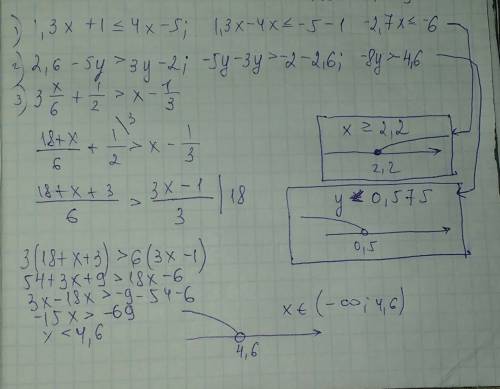 1) 1,3x + 1 ≤ 4x - 5; 1,3x - 4x ≤ -5 - 1 -2,7x ≤ -6
2) 2,6 - 5y > 3y - 2; -5y - 3y > -2 - 2,6; -8y > -4,6
3) 3 x/6 + 1/2 > x - 1/3
x ≥ 2,2
2,2
(18+x)/6 + 1/2 \3 > x - 1/3
y < 0,575
0,5
(18+x+3)/6 > (3x-1)/3 | 18
3(18+x+3) > 6(3x-1)
54+3x+9 > 18x-6
3x-18x > -9-54-6
-15x > -69
x < 4,6
4,6
x ∈ (-∞; 4,6)